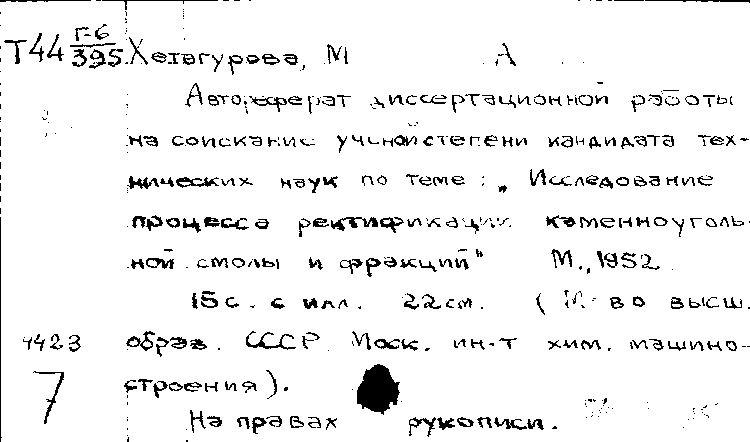 Т44 Г-6/395 Хетагурова, М А
Автореферат диссертационной работы
на соискание ученой степени кандидата тех-
нических наук по теме: „Исследование
процесса ректификации каменноуголь-
ной смолы и фракций" М., 1952.
15 с. с илл. 22 см. (М-во высш.
4423 образ. СССР. Моск. ин-т хим. машино-
7 строения).
На правах рукописи.